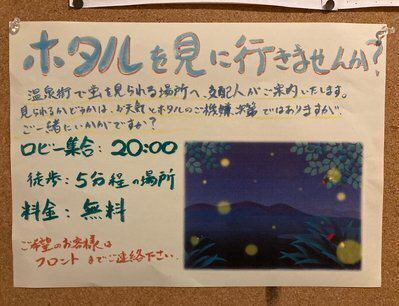 ホタルを見に行きませんか?
温泉街で蛍を見られる場所へ、支配人がご案内いたします。
見られるかどうかは、お天気とホタルのご機嫌次第ではありますが、
ご一緒にいかがですか?
ロビー集合: 20:00
徒歩: 5分程の場所
料金: 無料
ご希望のお客様は
フロントまでご連絡下さい.